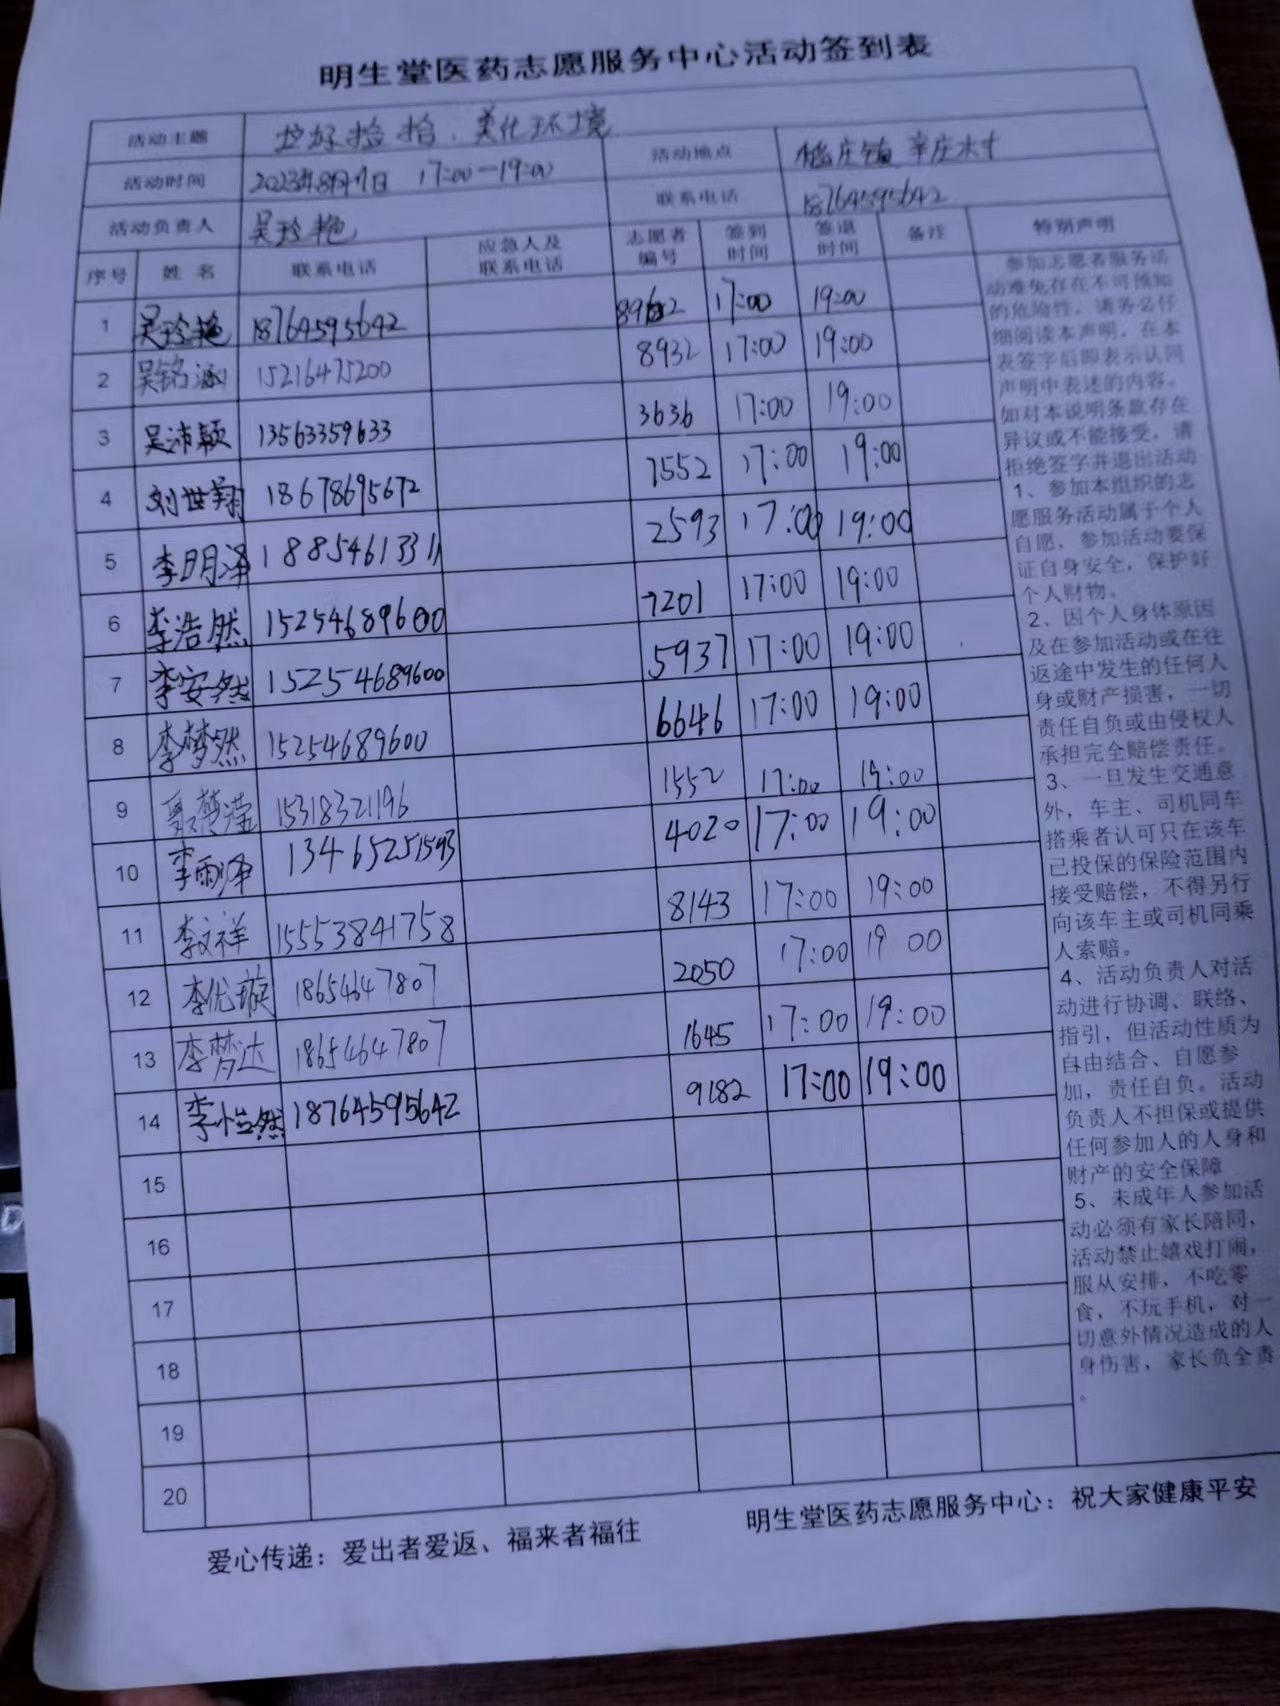 明生堂医药志愿服务中心活动签到表
活动主题 捡拾, 美化环境
活动时间 2023年8月17日 17:00-19:00 活动地点 镇 辛庄村
活动负责人 吴玲艳 联系电话 18764595642
序号 姓名 联系电话 应急人及联系电话 志愿者编号 签到时间 签退时间 备注 特别声明
1 吴玲艳 18764595642 17:00 19:00
2 吴铭涵 15216475200 8932 17:00 19:00
3 吴沛颖 13563359633 3636 17:00 19:00
4 刘世翔 18678695672 7552 17:00 19:00
5 李明泽 18854613311 2593 17:00 19:00
6 李浩然 15254689600 7201 17:00 19:00
7 李安然 15254689600 5937 17:00 19:00
8 李梦然 15254689600 6646 17:00 19:00
9 15318321196 1552 17:00 19:00
10 李雨泽 13465251593 4020 17:00 19:00
11 李文祥 15553841758 8143 17:00 19:00
12 李优璇 18654647807 2050 17:00 19 00
13 李梦达 18654647807 1645 17:00 19:00
14 李怡然 18764595642 9182 17:00 19:00
15
16
17
18
19
20
参加志愿者服务活
动难免存在不可预知
的危险性，请务必仔
细阅读本声明，在本
表签字后即表示认同
声明中表述的内容。
如对本说明条款存在
异议或不能接受，请
拒绝签字并退出活动
1、参加本组织的志
愿服务活动属于个人
自愿，参加活动要保
证自身安全，保护好
个人财物。
2、因个人身体原因
及在参加活动或在往
返途中发生的任何人
身或财产损害，一切
责任自负或由侵权人
承担完全赔偿责任。
3、一旦发生交通意
外，车主、司机同车
搭乘者认可只在该车
已投保的保险范围内
接受赔偿，不得另行
向该车主或司机同乘
人索赔。
4、活动负责人对活
动进行协调、联络、
指引，但活动性质为
自由结合、自愿参
加，责任自负。活动
负责人不担保或提供
任何参加人的人身和
财产的安全保障
5、未成年人参加活
动必须有家长陪同，
活动禁止嬉戏打闹，
服从安排，不吃零
食，不玩手机，对一
切意外情况造成的人
身伤害，家长负全责
。
爱心传递：爱出者爱返、福来者福往 明生堂医药志愿服务中心：祝大家健康平安